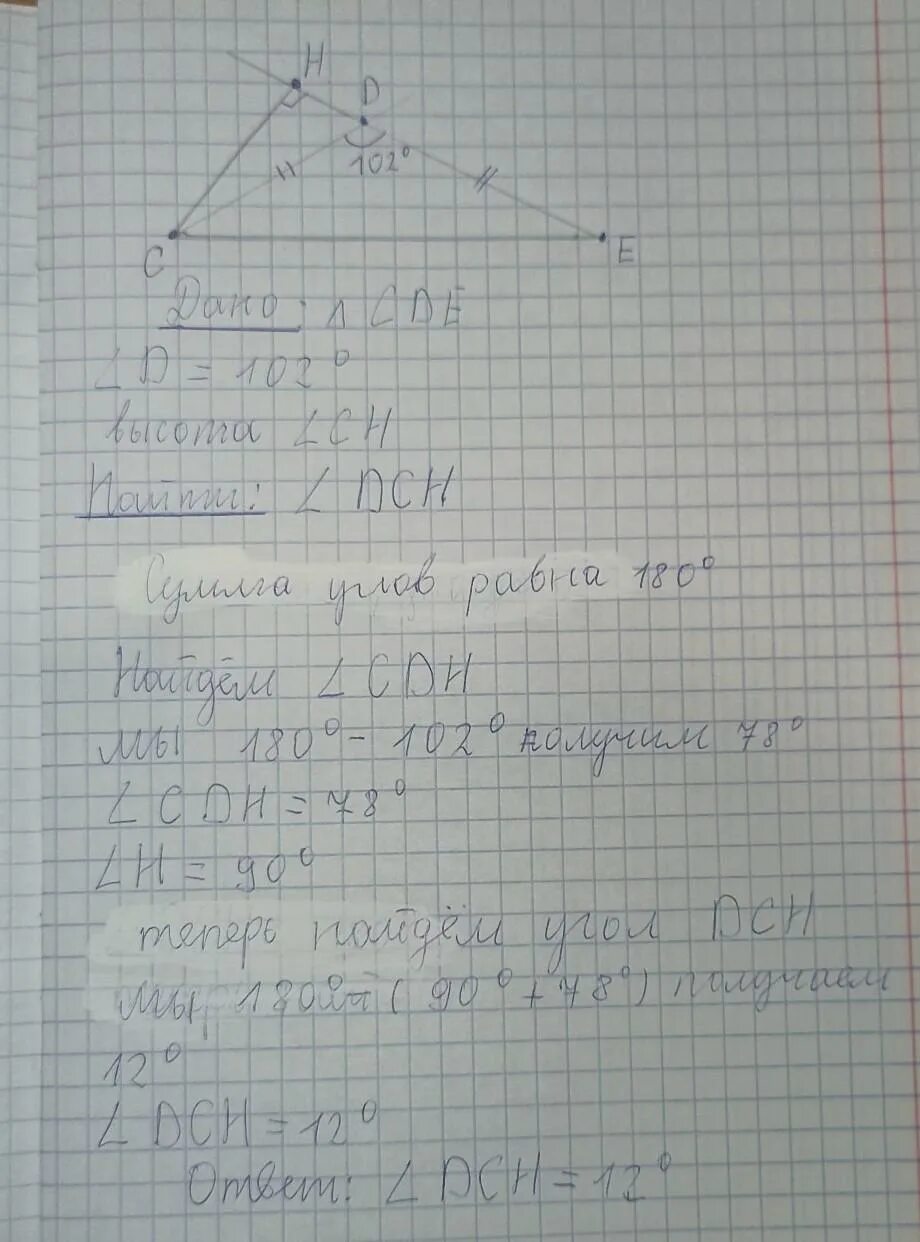 H
D
102°
C
E
Дано: Δ CDE
∠D = 102°
высота ∠CH
Найти: ∠ DCH
Сумма углов равна 180°
Найдём ∠CDH
мы 180° - 102° получим 78°
∠CDH = 78°
∠H = 90°
теперь найдём угол DCH
мы 180° - (90° + 78°) получаем
12°
∠DCH = 12°
Ответ: ∠DCH = 12°